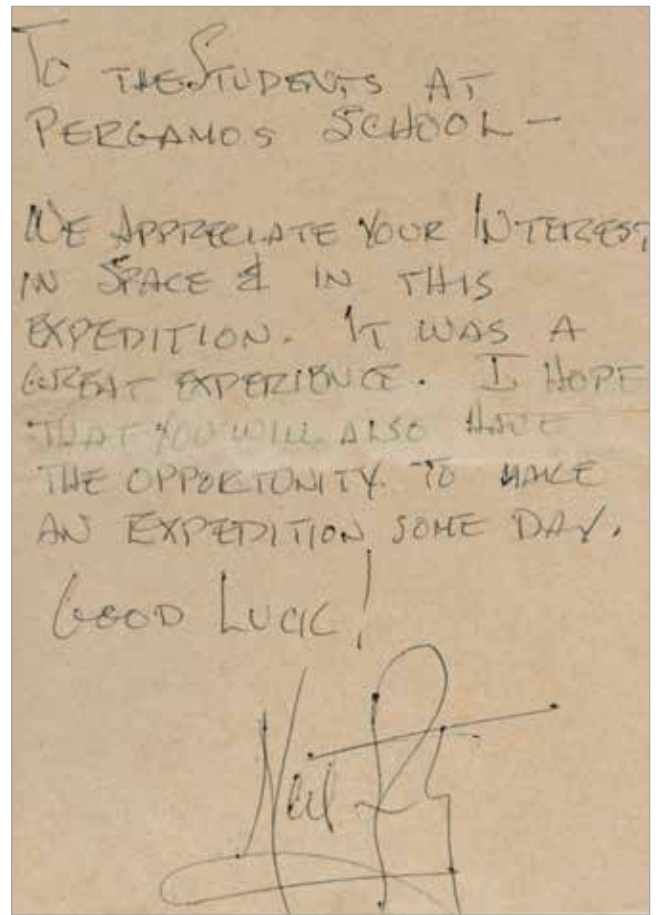 To THE STUDENTS AT
PERGAMOS SCHOOL —
WE APPRECIATE YOUR INTEREST
IN SPACE & IN THIS
EXPEDITION. IT WAS A
GREAT EXPERIENCE. I HOPE
THAT YOU WILL ALSO HAVE
THE OPPORTUNITY TO MAKE
AN EXPEDITION SOME DAY.
GOOD LUCK!
Neil